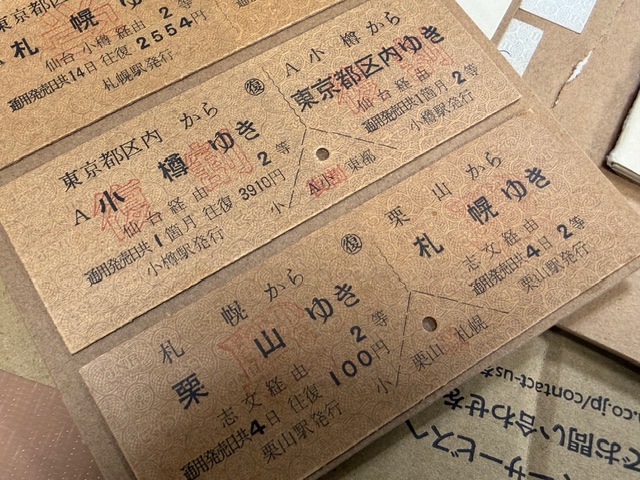 東京都区内から
札幌ゆき
仙台 小樽 経由 2
通用発売日共14日 往復2554円
札幌駅発行
東京都区内 から
A小樽ゆき
仙台経由 2等
通用発売日共1箇月 往復3910円
小樽駅発行
復
A小樽から
東京都区内ゆき
仙台経由
通用発売日共1箇月 2等
小樽駅発行
小
A小 東都
復割
札幌から
栗山ゆき
志文経由 2等
通用発売日共4日 往復100円
栗山駅発行
復
栗山から
札幌ゆき
志文経由
通用発売日共4日 2等
栗山駅発行
小
栗山 札幌
サービスへ
でお問い合わせを
co.jp/contact-usを